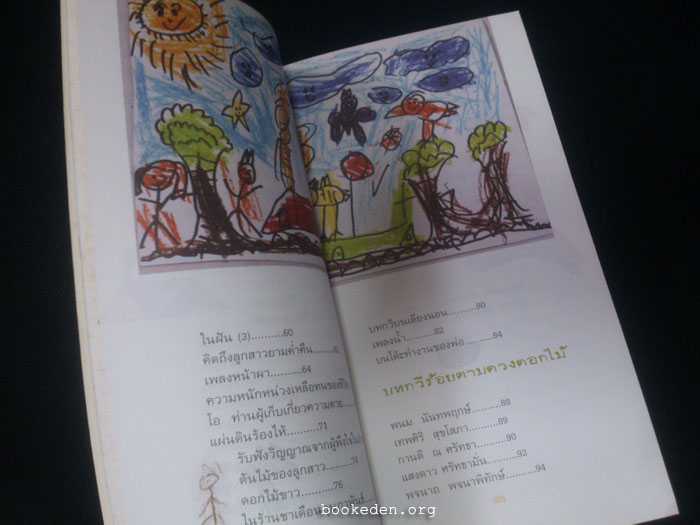 ในฝัน (3)..........60
คิดถึงลูกสาวยามค่ำคืน..........
เพลงหน้าผา..........64
ความหนักหน่วงเหลือทนของชีวิ
โอ ท่านผู้เก็บเกี่ยวความตาย
แผ่นดินร้องไห้..........71
รับฟังวิญญาณจากผู้พึ่ง
ต้นไม้ของลูกสาว..........74
ดอกไม้ขาว..........76
ในร้านชาเดือน
บทกวีบนเตียงนอน..........80
เพลงน้ำ..........82
บนโต๊ะทำงานของพ่อ..........84
บทกวีร้อยตามดวงดอกไม้
พนม นันทพฤกษ์..........88
เทพศิริ สุขโสภา..........89
กานติ ณ ศรัทธา..........90
แสงดาว ศรัทธามั่น..........93
พจนาถ พจนาพิทักษ์..........94
bookeden.org